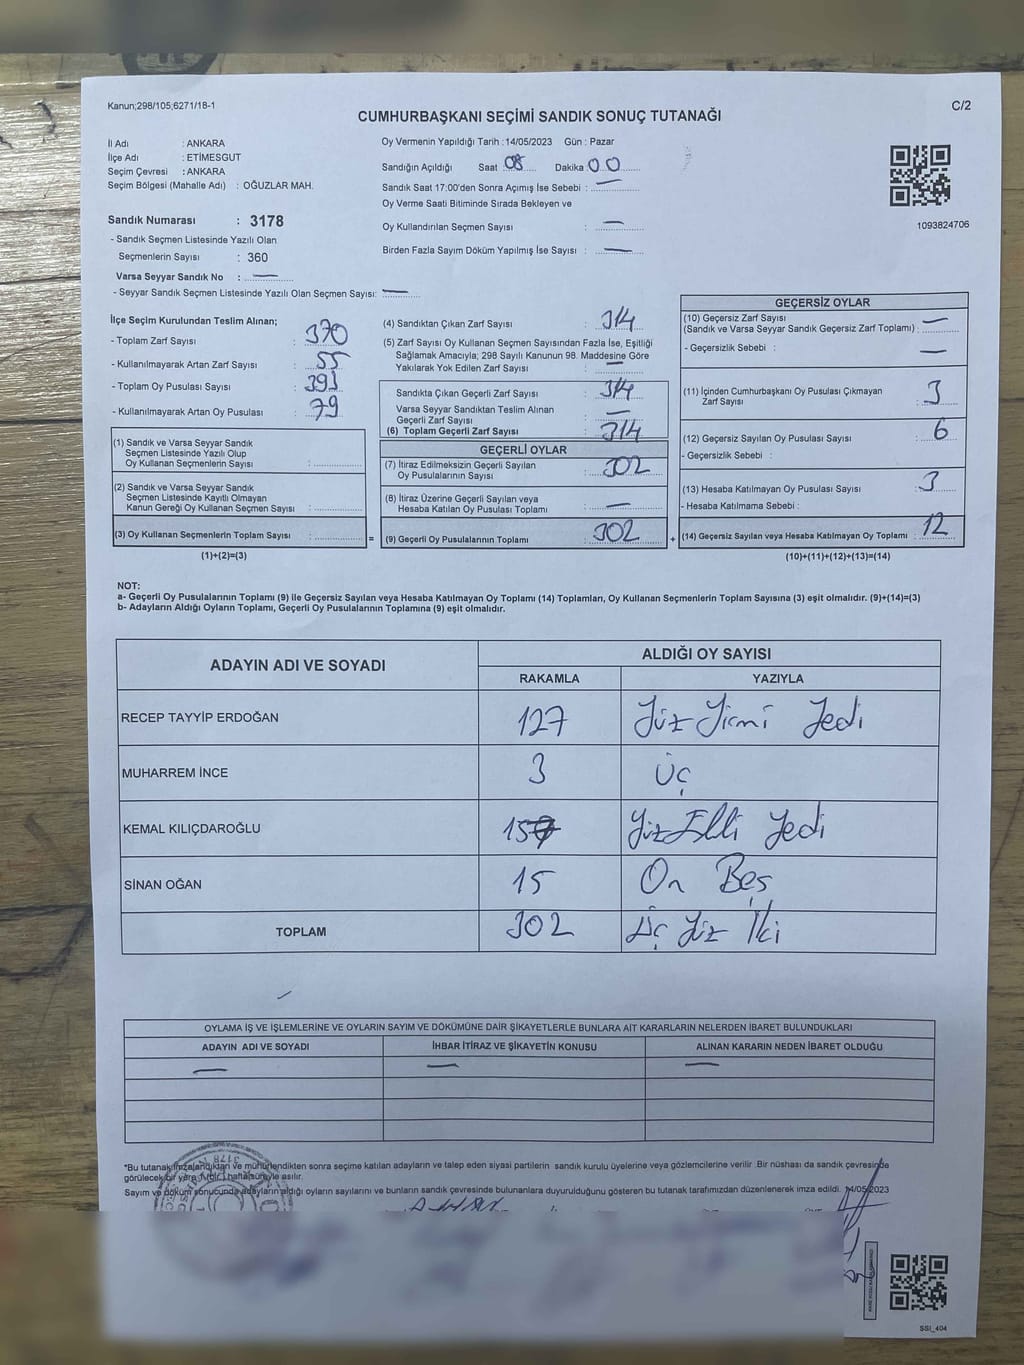 Kanun;298/105;6271/18-1
C/2
CUMHURBAŞKANI SEÇİMİ SANDIK SONUÇ TUTANAĞI
İl Adı : ANKARA
İlçe Adı : ETİMESGUT
Seçim Çevresi : ANKARA
Seçim Bölgesi (Mahalle Adı) : OĞUZLAR MAH.
Sandık Numarası : 3178
- Sandık Seçmen Listesinde Yazılı Olan
Seçmenlerin Sayısı : 360
Varsa Seyyar Sandık No : —
- Seyyar Sandık Seçmen Listesinde Yazılı Olan Seçmen Sayısı: —
Oy Vermenin Yapıldığı Tarih : 14/05/2023 Gün : Pazar
Sandığın Açıldığı Saat 08 Dakika 00
Sandık Saat 17:00'den Sonra Açımış İse Sebebi : —
Oy Verme Saati Bitiminde Sırada Bekleyen ve
Oy Kullandırılan Seçmen Sayısı : —
Birden Fazla Sayım Döküm Yapılmış İse Sayısı : —
1093824706
İlçe Seçim Kurulundan Teslim Alınan;
- Toplam Zarf Sayısı : 370
- Kullanılmayarak Artan Zarf Sayısı : 55
- Toplam Oy Pusulası Sayısı : 393
- Kullanılmayarak Artan Oy Pusulası : 79
(1) Sandık ve Varsa Seyyar Sandık
Seçmen Listesinde Yazılı Olup
Oy Kullanan Seçmenlerin Sayısı :
(2) Sandık ve Varsa Seyyar Sandık
Seçmen Listesinde Kayıtlı Olmayan
Kanun Gereği Oy Kullanan Seçmen Sayısı :
(3) Oy Kullanan Seçmenlerin Toplam Sayısı :
(1)+(2)=(3)
(4) Sandıktan Çıkan Zarf Sayısı : 314
(5) Zarf Sayısı Oy Kullanan Seçmen Sayısından Fazla İse, Eşitliği
Sağlamak Amacıyla; 298 Sayılı Kanunun 98. Maddesine Göre
Yakılarak Yok Edilen Zarf Sayısı : —
Sandıkta Çıkan Geçerli Zarf Sayısı : 314
Varsa Seyyar Sandıktan Teslim Alınan
Geçerli Zarf Sayısı : —
(6) Toplam Geçerli Zarf Sayısı : 314
GEÇERLİ OYLAR
(7) İtiraz Edilmeksizin Geçerli Sayılan
Oy Pusulalarının Sayısı : 302
(8) İtiraz Üzerine Geçerli Sayılan veya
Hesaba Katılan Oy Pusulası Toplamı : —
= (9) Geçerli Oy Pusulalarının Toplamı : 302 +
GEÇERSİZ OYLAR
(10) Geçersiz Zarf Sayısı
(Sandık ve Varsa Seyyar Sandık Geçersiz Zarf Toplamı) : —
- Geçersizlik Sebebi : —
(11) İçinden Cumhurbaşkanı Oy Pusulası Çıkmayan
Zarf Sayısı : 3
(12) Geçersiz Sayılan Oy Pusulası Sayısı : 6
- Geçersizlik Sebebi :
(13) Hesaba Katılmayan Oy Pusulası Sayısı : 3
- Hesaba Katılmama Sebebi :
(14) Geçersiz Sayılan veya Hesaba Katılmayan Oy Toplamı : 12
(10)+(11)+(12)+(13)=(14)
NOT:
a- Geçerli Oy Pusulalarının Toplamı (9) ile Geçersiz Sayılan veya Hesaba Katılmayan Oy Toplamı (14) Toplamları, Oy Kullanan Seçmenlerin Toplam Sayısına (3) eşit olmalıdır. (9)+(14)=(3)
b- Adayların Aldığı Oyların Toplamı, Geçerli Oy Pusulalarının Toplamına (9) eşit olmalıdır.
ADAYIN ADI VE SOYADI
ALDIĞI OY SAYISI
RAKAMLA YAZIYLA
RECEP TAYYİP ERDOĞAN 127 Yüz Yirmi Yedi
MUHARREM İNCE 3 Üç
KEMAL KILIÇDAROĞLU 157 Yüz Elli Yedi
SİNAN OĞAN 15 On Beş
TOPLAM 302 Üç Yüz İki
OYLAMA İŞ VE İŞLEMLERİNE VE OYLARIN SAYIM VE DÖKÜMÜNE DAİR ŞİKAYETLERLE BUNLARA AİT KARARLARIN NELERDEN İBARET BULUNDUKLARI
ADAYIN ADI VE SOYADI İHBAR İTİRAZ VE ŞİKAYETİN KONUSU ALINAN KARARIN NEDEN İBARET OLDUĞU
— — —
*Bu tutanak imzalandıktan ve mühürlendikten sonra seçime katılan adayların ve talep eden siyasi partilerin sandık kurulu üyelerine veya gözlemcilerine verilir. Bir nüshası da sandık çevresinde
görülecek bir yere 1 (bir) hafta süreyle asılır.
Sayım ve döküm sonucunda adayların aldığı oyların sayılarını ve bunların sandık çevresinde bulunanlara duyurulduğunu gösteren bu tutanak tarafımızdan düzenlenerek imza edildi. 14/05/2023
3178
SSI_404